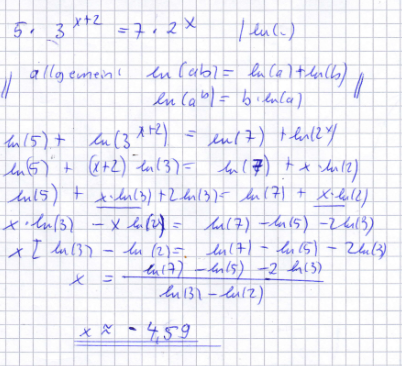 5 · 3^(x+2) = 7 · 2^x | ln(..)
|| allgemein: ln(ab) = ln(a) + ln(b) ||
ln(a^b) = b · ln(a)
ln(5) + ln(3^(x+2)) = ln(7) + ln(2^x)
ln(5) + (x+2) ln(3) = ln(7) + x · ln(2)
ln(5) + x · ln(3) + 2 ln(3) = ln(7) + x · ln(2)
x · ln(3) - x ln(2) = ln(7) - ln(5) - 2 ln(3)
x [ ln(3) - ln(2) = ln(7) - ln(5) - 2 ln(3)
x = (ln(7) - ln(5) - 2 ln(3)) / (ln(3) - ln(2))
x ≈ - 4,59